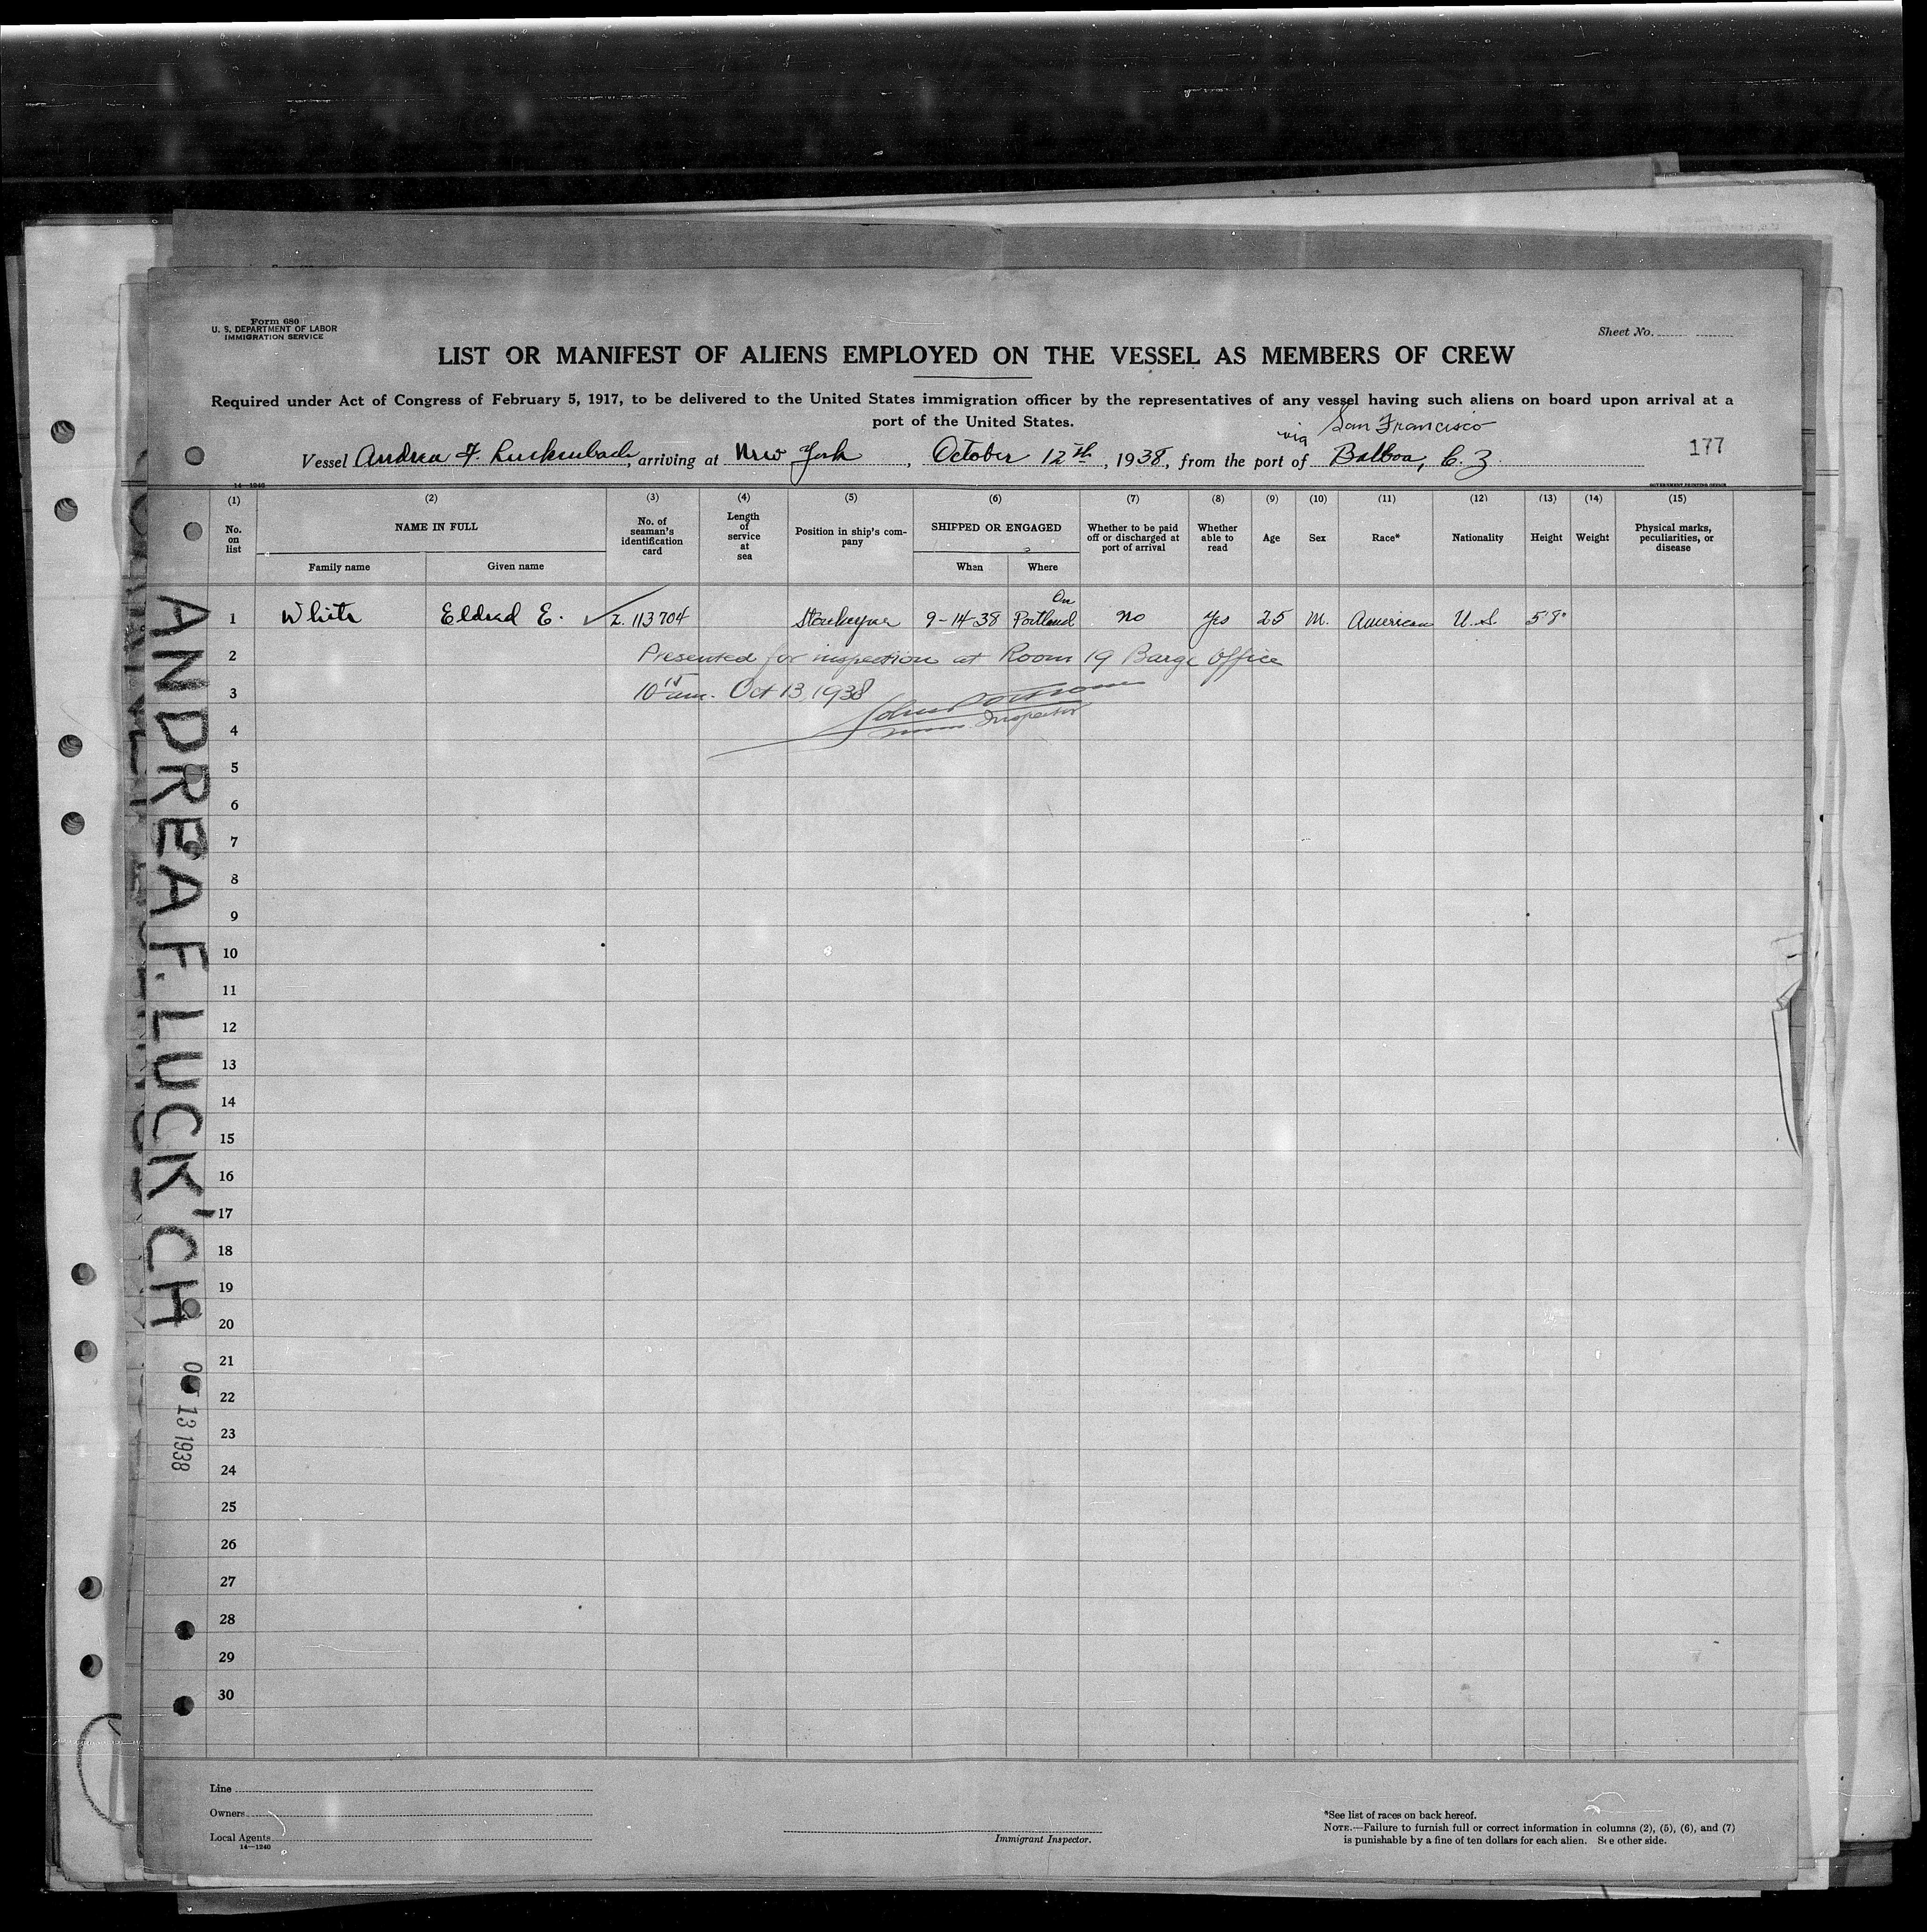 Form 680
U. S. DEPARTMENT OF LABOR
IMMIGRATION SERVICE
Sheet No.
LIST OR MANIFEST OF ALIENS EMPLOYED ON THE VESSEL AS MEMBERS OF CREW
Required under Act of Congress of February 5, 1917, to be delivered to the United States immigration officer by the representatives of any vessel having such aliens on board upon arrival at a
port of the United States.
via San Francisco
Vessel Andrea F. Luckenbach, arriving at New York, October 12th, 1938, from the port of Balboa, C. Z.
177
14—1240
GOVERNMENT PRINTING OFFICE
(1) (2) (3) (4) (5) (6) (7) (8) (9) (10) (11) (12) (13) (14) (15)
No. on list
NAME IN FULL
Family name
Given name
No. of seaman's identification card
Length of service at sea
Position in ship's company
SHIPPED OR ENGAGED
When
Where
Whether to be paid off or discharged at port of arrival
Whether able to read
Age
Sex
Race*
Nationality
Height
Weight
Physical marks, peculiarities, or disease
1 White Eldred E. ✓ Z. 113704 Storekeeper 9-14-38 Portland Ore no Yes 25 M. American U.S. 5'8"
2 Presented for inspection at Room 19 Barge Office
3 10 15 am. Oct 13, 1938
4 Inspector
5
6
7
8
9
10
11
12
13
14
15
16
17
18
19
20
21
22
23
24
25
26
27
28
29
30
ANDREA F. LUCK'CH
13 1938
Line
Owners
Local Agents
14—1240
Immigrant Inspector.
*See list of races on back hereof.
NOTE.—Failure to furnish full or correct information in columns (2), (5), (6), and (7)
is punishable by a fine of ten dollars for each alien. See other side.